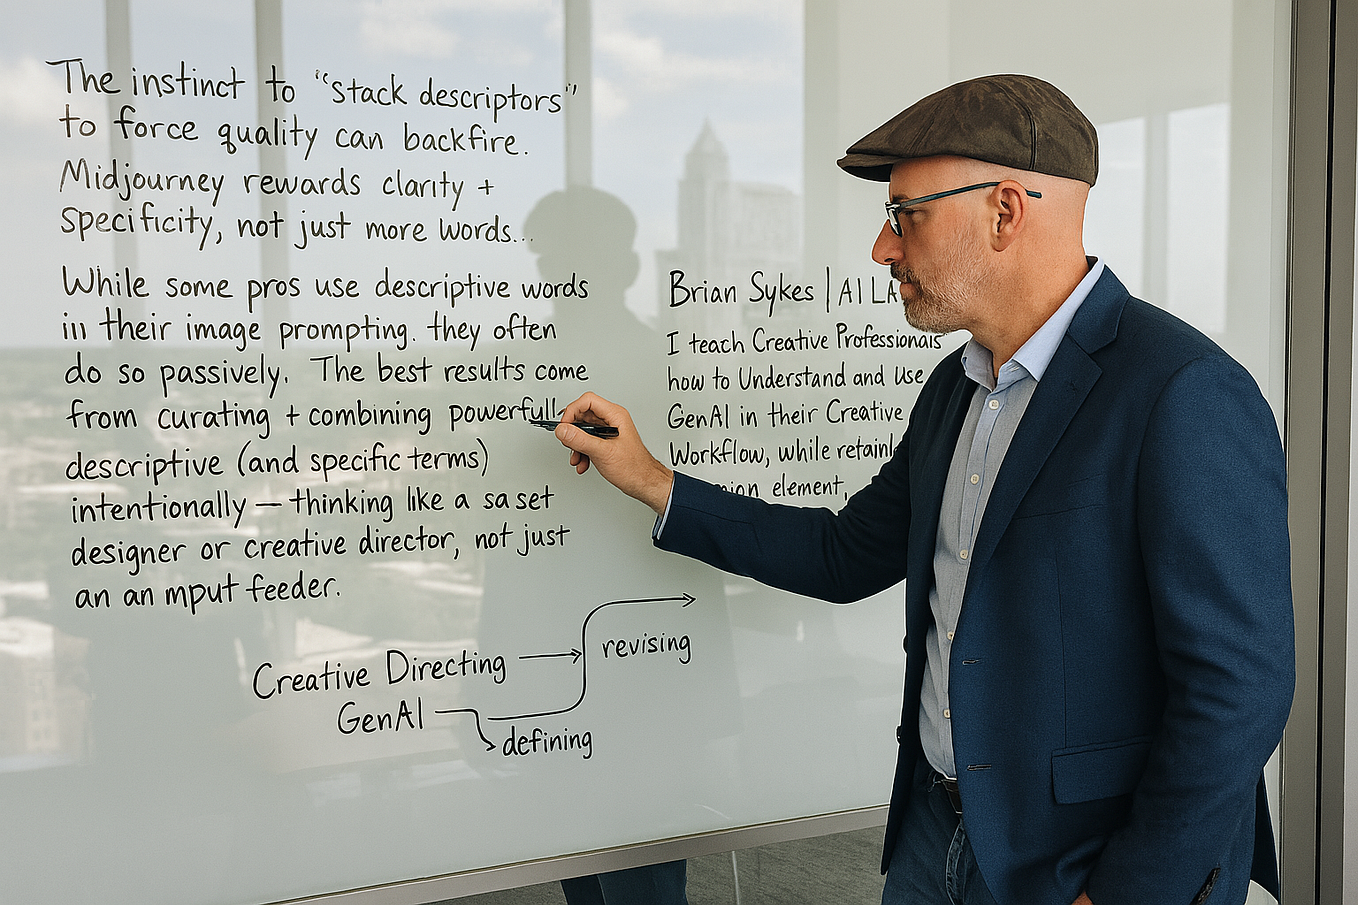 The instinct to "stack descriptors"
to force quality can backfire.
Midjourney rewards clarity +
specificity, not just more words...
While some pros use descriptive words
in their image prompting. they often
do so passively. The best results come
from curating + combining powerfull
descriptive (and specific terms)
intentionally — thinking like a sa set
designer or creative director, not just
an an mput feeder.
Brian Sykes | AI LA
I teach Creative Professionals
how to Understand and Use
GenAI in their Creative
Workflow, while retain
element,
Creative Directing
revising
GenAI
defining